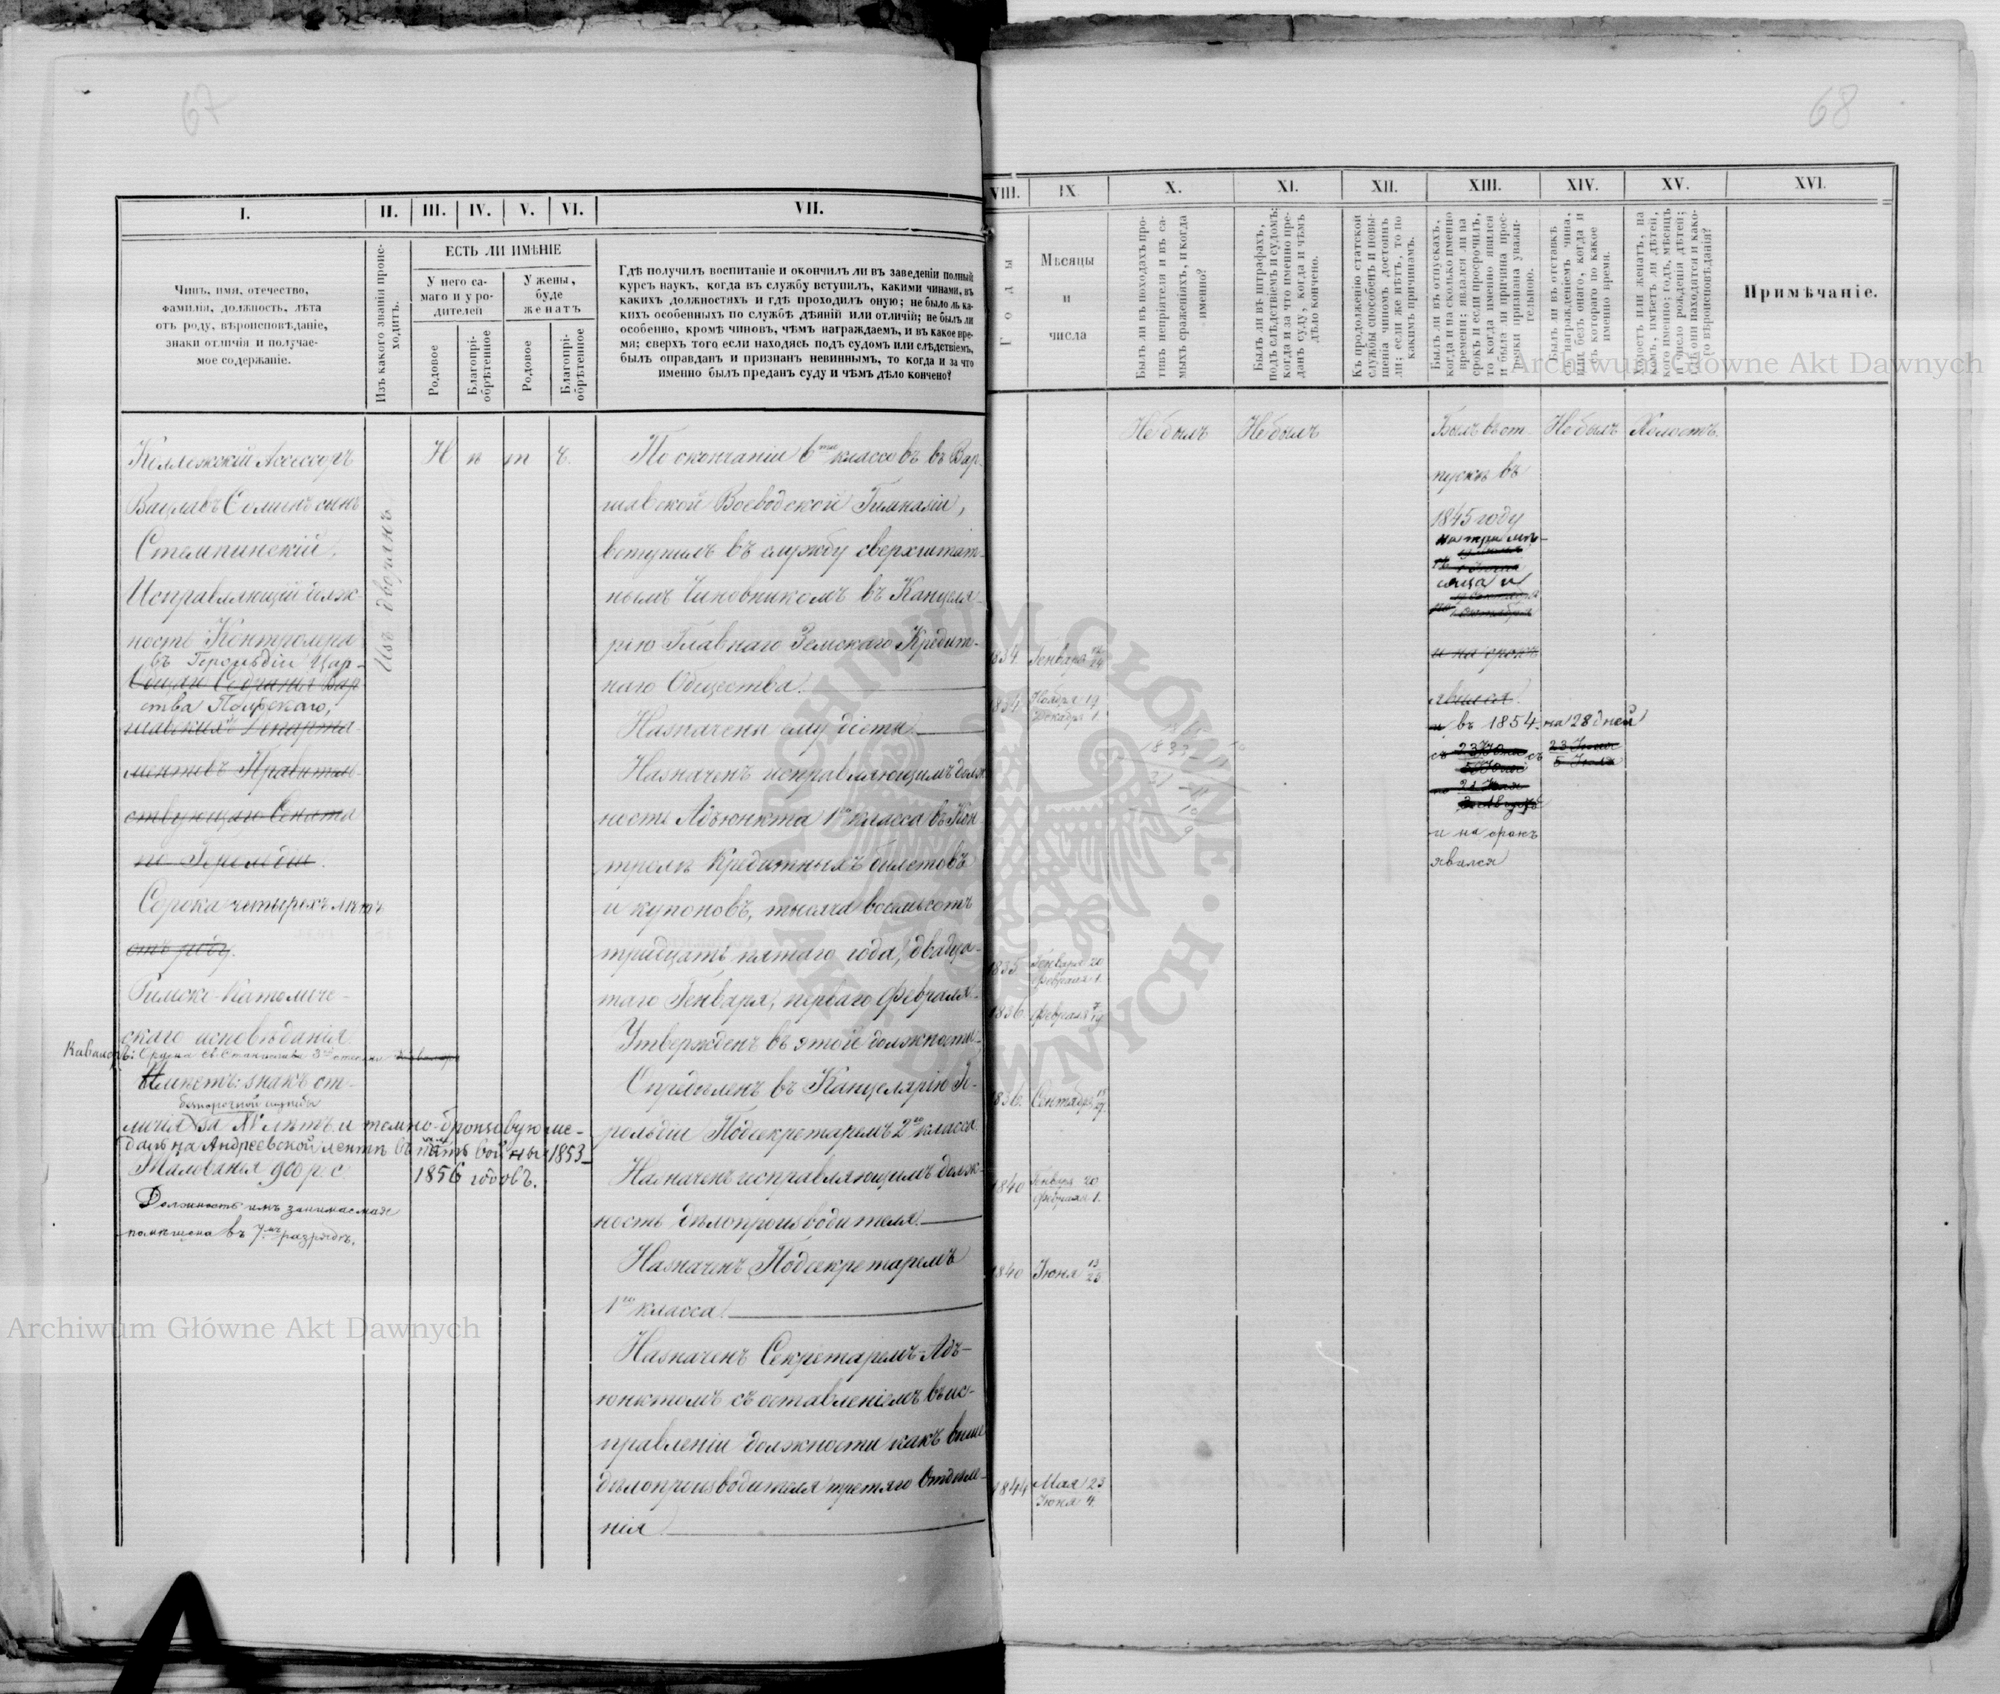 67
I.
II.
III.
IV.
V.
VI.
VII.
Чинъ, имя, отечество,
фамилія, должность, лѣта
отъ роду, вѣроисповѣданіе,
знаки отличія и получае-
мое содержаніе.
Изъ какого званія проис-
ходитъ.
ЕСТЬ ЛИ ИМѢНІЕ
У него са-
маго и у ро-
дителей
У жены,
буде
женатъ
Родовое
Благопрі-
обрѣтенное
Родовое
Благопрі-
обрѣтенное
Гдѣ получилъ воспитаніе и окончилъ ли въ заведеніи полный
курсъ наукъ, когда въ службу вступилъ, какими чинами, въ
какихъ должностяхъ и гдѣ проходилъ оную; не было ль ка-
кихъ особенныхъ по службѣ дѣяній или отличій; не былъ ли
особенно, кромѣ чиновъ, чѣмъ награждаемъ, и въ какое вре-
мя; сверхъ того если находясь подъ судомъ или слѣдствіемъ,
былъ оправданъ и признанъ невиннымъ, то когда и за что
именно былъ преданъ суду и чѣмъ дѣло кончено?
Коллежскій Ассессоръ
Вацлавъ сынъ
Стемпинскій,
Исправляющій долж-
ность Контролера
въ Герольдіи Цар-
Общаго Собранія Вар-
ства Польскаго,
шавскихъ Департа-
ментовъ Правитель-
ствующаго Сената
Сорока четырехъ лѣтъ
отъ роду.
Римско-Католиче-
скаго исповѣданія.
Кавалеръ: Ордена Св. Станислава 3й степени
Имѣетъ: знакъ от-
безпорочной службы
личія за XV лѣтъ и темно-бронзовую ме-
даль на Андреевской лентѣ въ память войны 1853–
Жалованья 900 р. с. 1856 годовъ.
Должность имъ занимаемая
помѣщена въ 7мъ разрядѣ.
Изъ дворянъ
Н ѣ т ъ.
По окончаніи 6ти классовъ въ Вар-
шавской Воеводской Гимназіи,
вступилъ въ службу сверхштат-
нымъ Чиновникомъ въ Канцеля-
рію Главнаго Земскаго Кредит-
наго Общества.
Назначена ему діэта.
Назначенъ исправляющимъ долж-
ность Адъюнкта 1го класса въ Кон-
тролѣ Кредитныхъ билетовъ
и купоновъ, тысяча восемьсотъ
тридцать пятаго года, двадца-
таго Генваря, перваго Февраля.
Утвержденъ въ этой должности.
Опредѣленъ въ Канцелярію Ге-
рольдіи Подсекретаремъ 2го класса.
Назначенъ исправляющимъ долж-
ность дѣлопроизводителя.
Назначенъ Подсекретаремъ
1го класса.
Назначенъ Секретаремъ-Адъ-
юнктомъ съ оставленіемъ въ ис-
правленіи должности какъ выше
дѣлопроизводителя третяго Отдѣле-
нія
68
VIII.
IX.
X.
XI.
XII.
XIII.
XIV.
XV.
XVI.
Годы
Мѣсяцы
и
числа
Былъ ли въ походахъ про-
тивъ непріятеля и въ са-
мыхъ сраженіяхъ, и когда
именно?
Былъ ли въ штрафахъ,
подъ слѣдствіемъ и судомъ;
когда и за что именно пре-
данъ суду, когда и чѣмъ
дѣло кончено.
Къ продолженію статской
службы способенъ и повы-
шенія чиномъ достоинъ
ли; если же нѣтъ, то по
какимъ причинамъ.
Былъ ли въ отпускахъ,
когда и на сколько именно
времени; явился ли на
срокъ и если просрочилъ,
то когда именно явился
и была ли причина прос-
рочки признана уважи-
тельною.
Былъ ли въ отставкѣ
съ награжденіемъ чина,
или безъ онаго, когда и
съ котораго по какое
именно время.
Холостъ или женатъ, на
комъ, имѣетъ ли дѣтей,
кого именно; годъ, мѣсяцъ
и число рожденія дѣтей;
гдѣ они находятся и како-
го вѣроисповѣданія?
Примѣчаніе.
1834. Генваря
1834. Ноября 19
Декабря 1.
1835 Генваря 20
Февраля 1.
1836 Февраля 7/19
1836. Сентября
1840 Генваря 20
Февраля 1.
1840 Іюня 13/25
1844 Мая 23
Іюня 4.
Не былъ
Не былъ
Былъ въ от-
пускѣ въ
1845 году
на три мѣ-
сяца и
и на срокъ
явился
и въ 1854 на 28 дней
и на срокъ
явился
Не былъ
Холостъ.
1833
Archiwum Główne Akt Dawnych
Archiwum Główne Akt Dawnych
ARCHIWUM GŁÓWNE AKT DAWNYCH